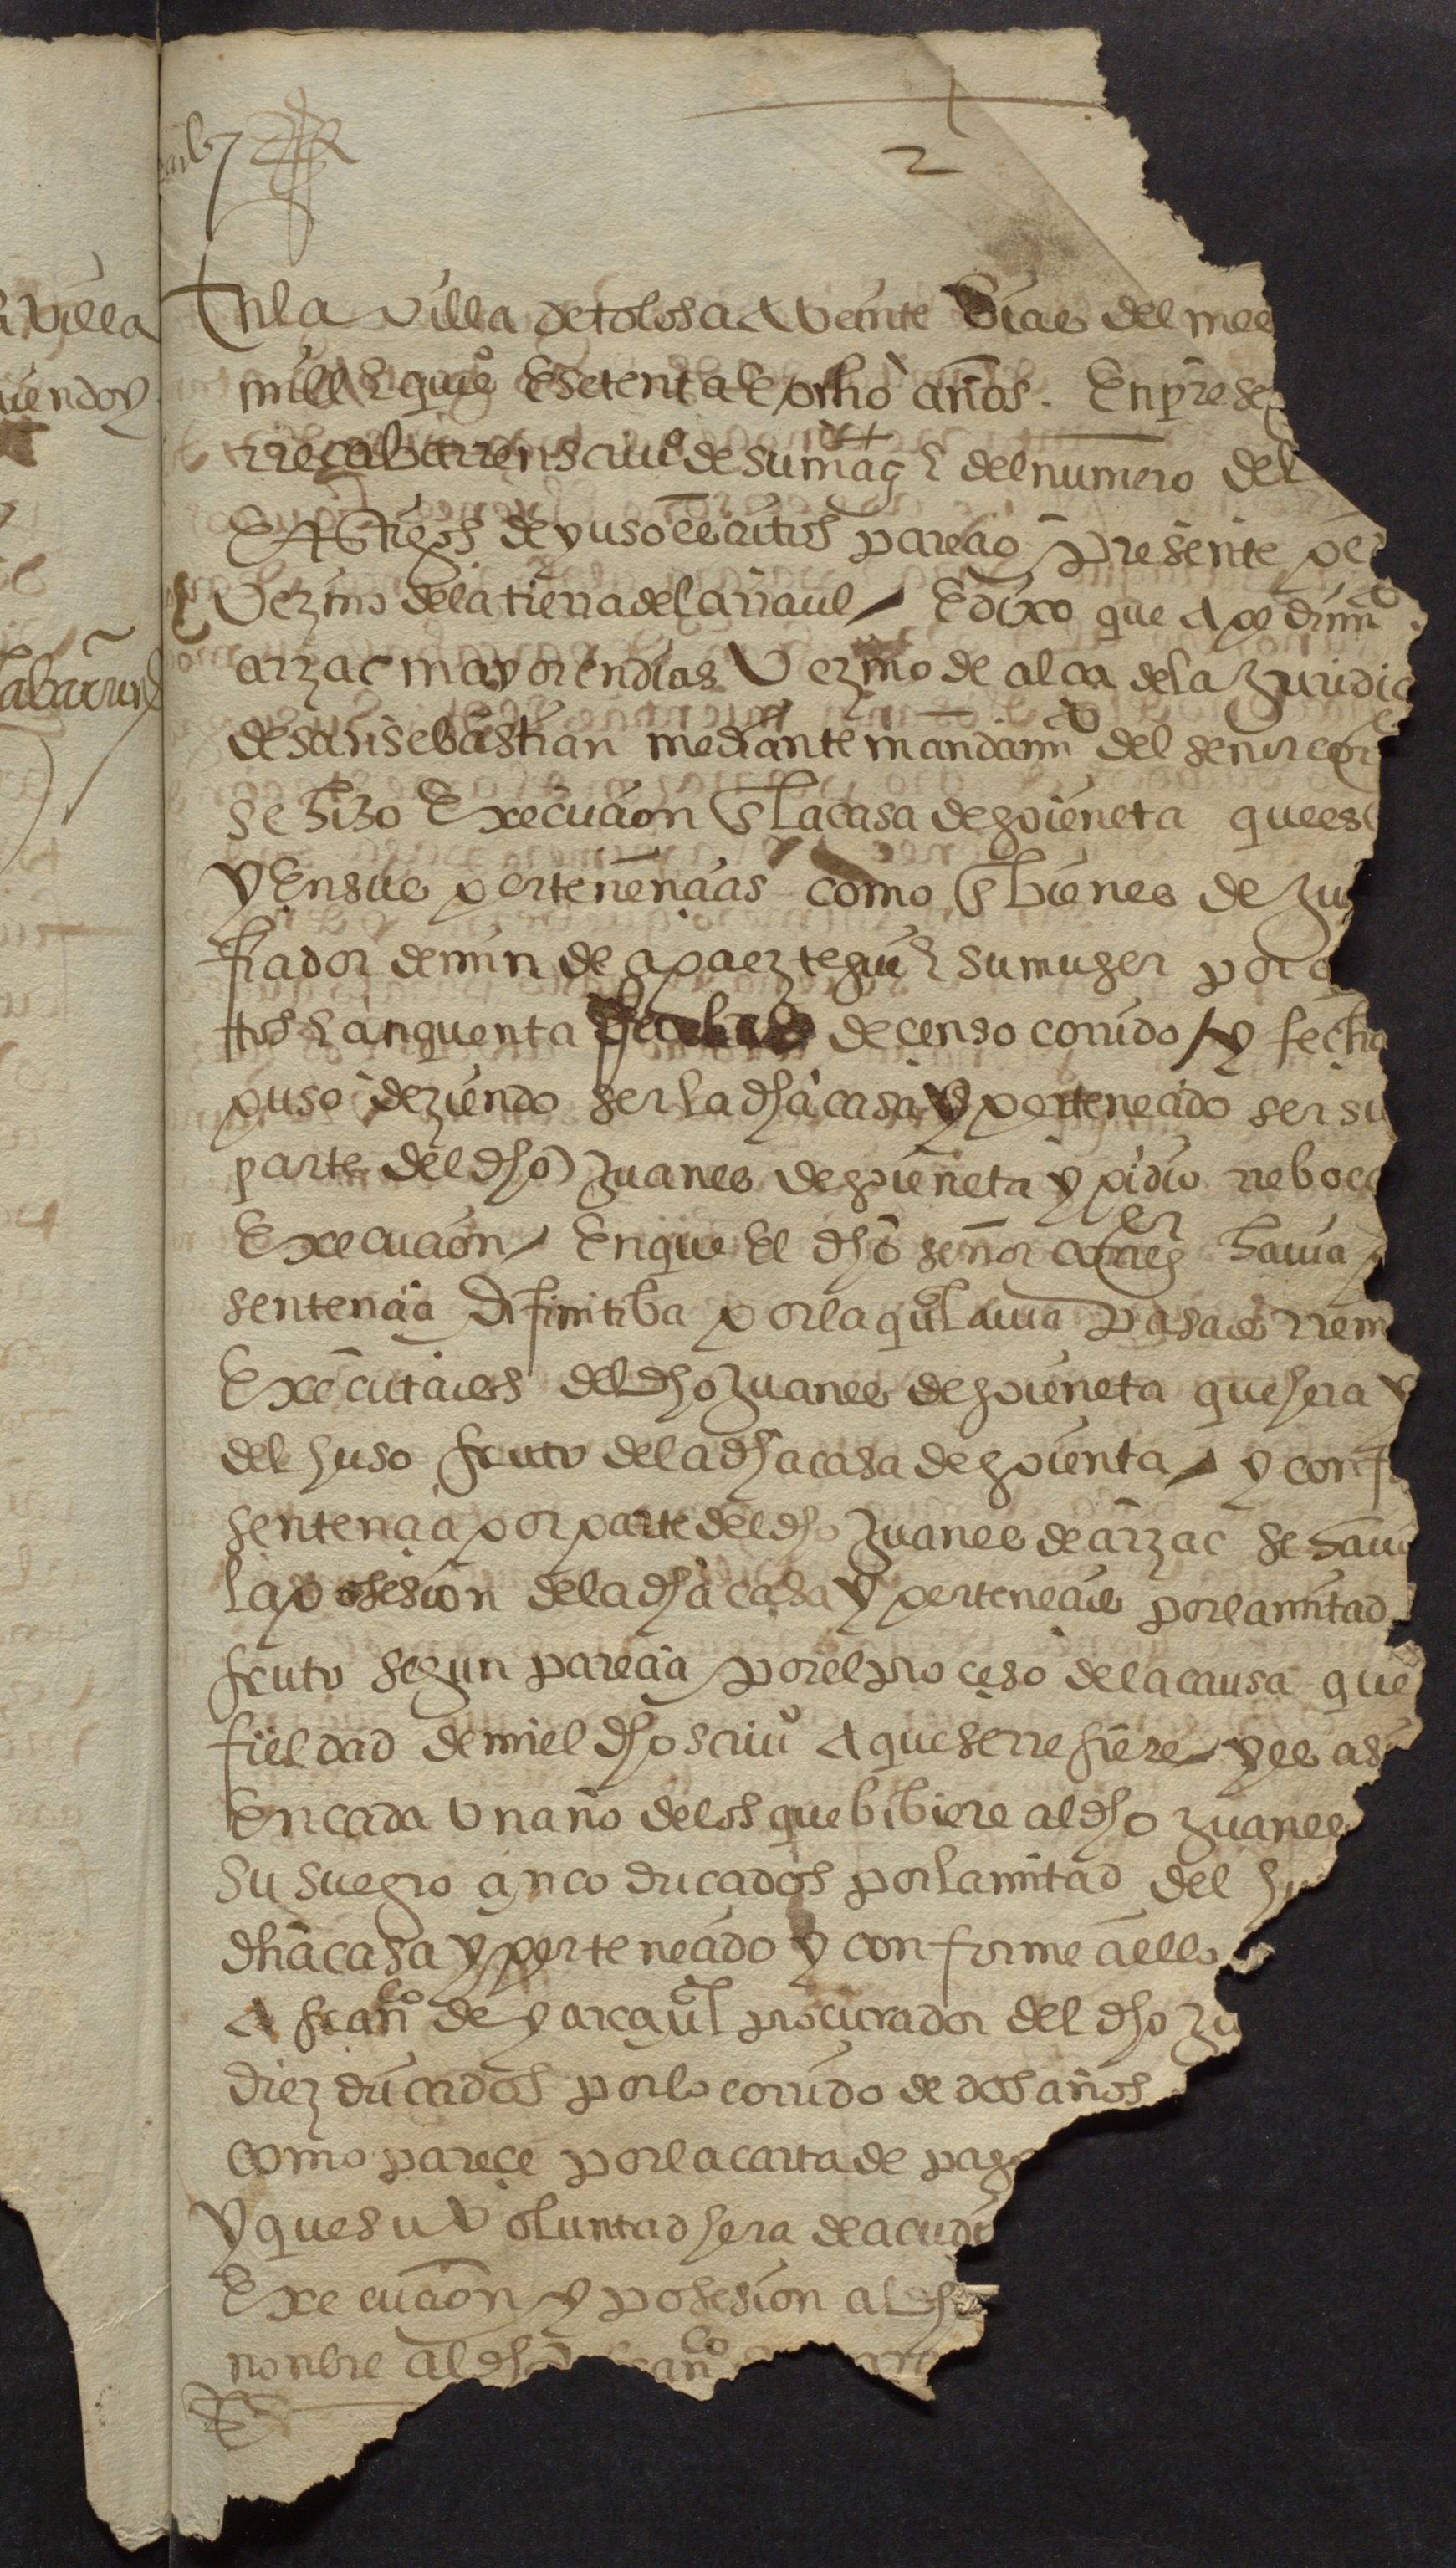 2
En la villa de tolosa A veinte dias del mes
mill e quis e setenta e ocho años. En prese
rrecabarren scriuo de su magt e del numero del
E testigos de yuso escritos parecio presente pe
vezino de la tierra de larraul / E dixo que A pedimto
arzac mayor en dias vezino de alça de la Juridic
de san sebastian mediante mandamto del señor cor
se hizo Execucion en la casa de goieneta que es
y En sus pertenencias como en bienes de Ju
fiador de min de apaeztegui e su muger por
tos e cinquenta de censo corrido / y fecha
puso deziendo ser la dha casa y pertenecido ser su
parte del dho Juanes de goieneta y pidio reboca
Execucion / En que El dho señor correger hauia
sentencia difinitiba por la qual auia
Executaies del dho Juanes de goieneta que hera
del huso fruto de la dha casa de goienta / y conf
sentencia por parte del dho Juanes de arzac se hauia
la posesion de la dha casa y pertenecies por la mitad
fruto segun parecia por el proceso de la causa que
fieldad de mi el dho scriuo A que se rrefiere / y es asi
En cada vn año de los que bibiere al dho Juanes
su suegro cinco ducados por la mitad del hu
dha casa y pertenecido y conforme a ello
A franco de yarça procurador del dho Ju
diez ducados por lo corrido de dos años
como parece por la carta de pag
y que su voluntad hera de acudi
Execucion y posesion al dho
nonbre al dho franco
villa
uiendo y